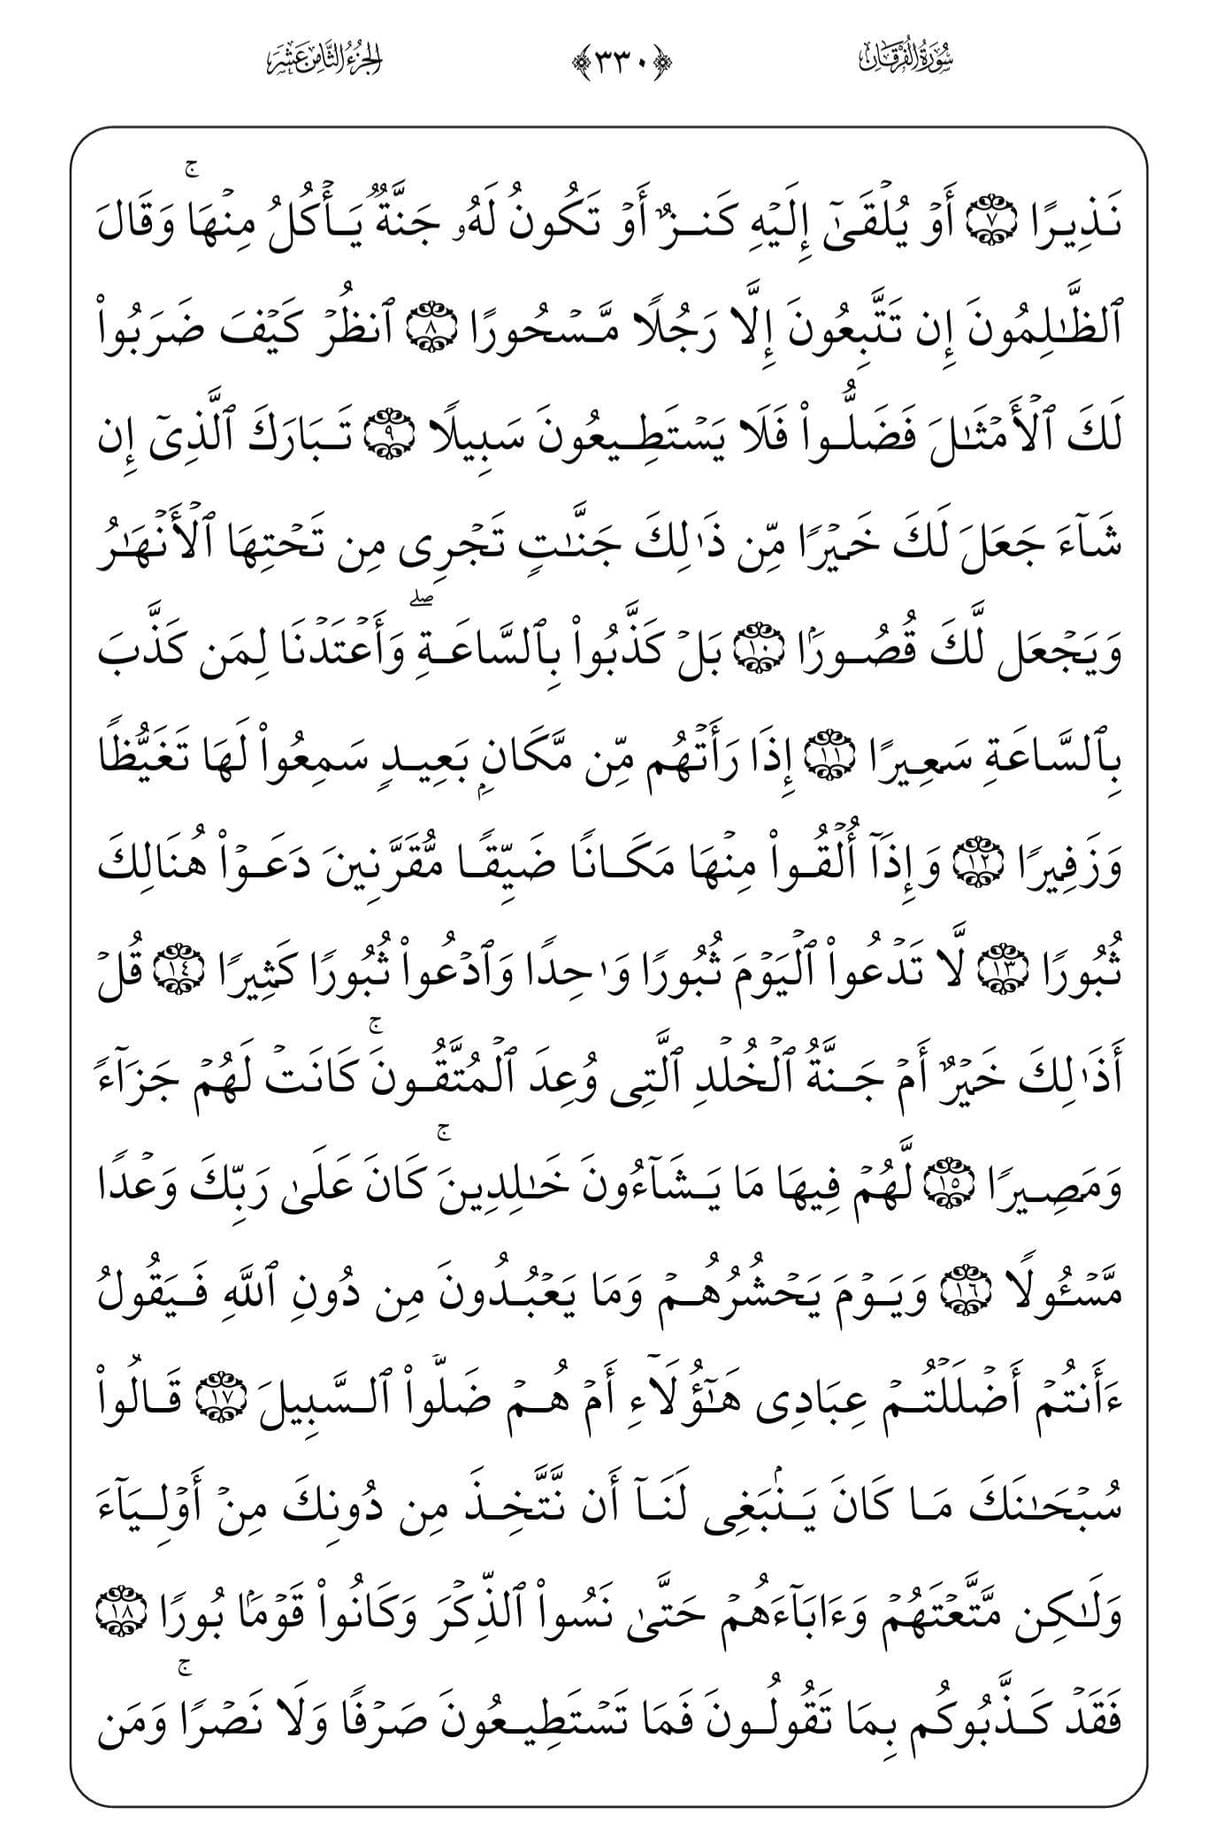 سُورَةُ الْفُرْقَانِ ﴿٣٣٠﴾ الْجُزْءُ الثَّامِنَ عَشَرَ
نَذِيرًا ٧ أَوْ يُلْقَىٰٓ إِلَيْهِ كَنزٌ أَوْ تَكُونُ لَهُۥ جَنَّةٌ يَأْكُلُ مِنْهَا ۚ وَقَالَ
ٱلظَّـٰلِمُونَ إِن تَتَّبِعُونَ إِلَّا رَجُلًا مَّسْحُورًا ٨ ٱنظُرْ كَيْفَ ضَرَبُوا۟
لَكَ ٱلْأَمْثَـٰلَ فَضَلُّوا۟ فَلَا يَسْتَطِيعُونَ سَبِيلًا ٩ تَبَارَكَ ٱلَّذِىٓ إِن
شَآءَ جَعَلَ لَكَ خَيْرًا مِّن ذَٰلِكَ جَنَّـٰتٍ تَجْرِى مِن تَحْتِهَا ٱلْأَنْهَـٰرُ
وَيَجْعَل لَّكَ قُصُورًۢا ١٠ بَلْ كَذَّبُوا۟ بِٱلسَّاعَةِ ۖ وَأَعْتَدْنَا لِمَن كَذَّبَ
بِٱلسَّاعَةِ سَعِيرًا ١١ إِذَا رَأَتْهُم مِّن مَّكَانٍۭ بَعِيدٍ سَمِعُوا۟ لَهَا تَغَيُّظًا
وَزَفِيرًا ١٢ وَإِذَآ أُلْقُوا۟ مِنْهَا مَكَانًا ضَيِّقًا مُّقَرَّنِينَ دَعَوْا۟ هُنَالِكَ
ثُبُورًا ١٣ لَّا تَدْعُوا۟ ٱلْيَوْمَ ثُبُورًا وَٰحِدًا وَٱدْعُوا۟ ثُبُورًا كَثِيرًا ١٤ قُلْ
أَذَٰلِكَ خَيْرٌ أَمْ جَنَّةُ ٱلْخُلْدِ ٱلَّتِى وُعِدَ ٱلْمُتَّقُونَ ۚ كَانَتْ لَهُمْ جَزَآءً
وَمَصِيرًا ١٥ لَّهُمْ فِيهَا مَا يَشَآءُونَ خَـٰلِدِينَ ۚ كَانَ عَلَىٰ رَبِّكَ وَعْدًا
مَّسْـُٔولًا ١٦ وَيَوْمَ يَحْشُرُهُمْ وَمَا يَعْبُدُونَ مِن دُونِ ٱللَّهِ فَيَقُولُ
ءَأَنتُمْ أَضْلَلْتُمْ عِبَادِى هَـٰٓؤُلَآءِ أَمْ هُمْ ضَلُّوا۟ ٱلسَّبِيلَ ١٧ قَالُوا۟
سُبْحَـٰنَكَ مَا كَانَ يَنۢبَغِى لَنَآ أَن نَّتَّخِذَ مِن دُونِكَ مِنْ أَوْلِيَآءَ
وَلَـٰكِن مَّتَّعْتَهُمْ وَءَابَآءَهُمْ حَتَّىٰ نَسُوا۟ ٱلذِّكْرَ وَكَانُوا۟ قَوْمًۢا بُورًا ١٨
فَقَدْ كَذَّبُوكُم بِمَا تَقُولُونَ فَمَا تَسْتَطِيعُونَ صَرْفًا وَلَا نَصْرًا ۚ وَمَن